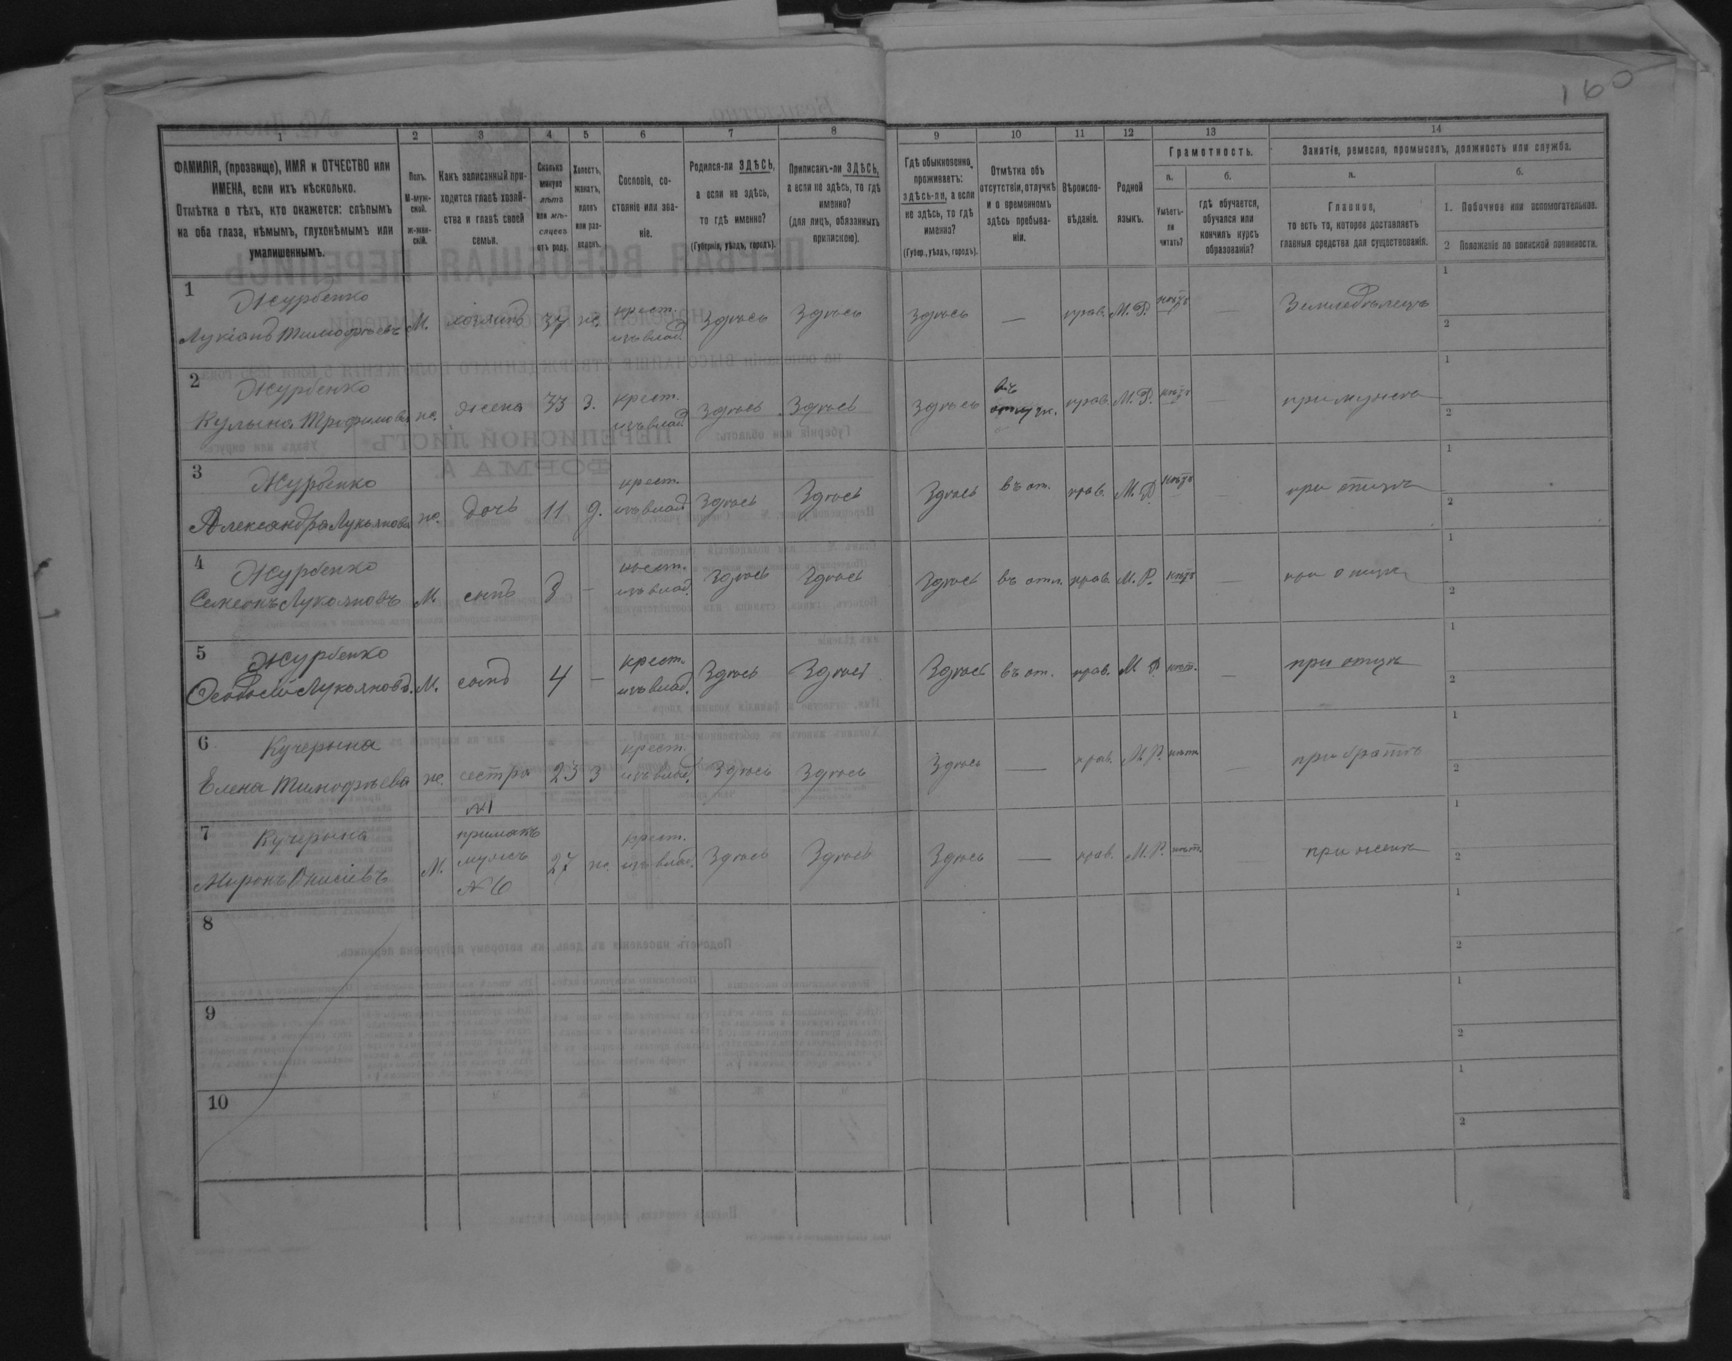 160
1 2 3 4 5 6 7 8 9 10 11 12 13 14
ФАМИЛІЯ, (прозвище), ИМЯ и ОТЧЕСТВО или
ИМЕНА, если ихъ нѣсколько.
Отмѣтка о тѣхъ, кто окажется: слѣпымъ
на оба глаза, нѣмымъ, глухонѣмымъ или
умалишеннымъ.
Полъ.
М-муж-
ской.
ж-жен-
скій.
Какъ записанный при-
ходится главѣ хозяй-
ства и главѣ своей
семьи.
Сколько
минуло
лѣтъ
или мѣ-
сяцевъ
отъ роду.
Холостъ,
женатъ,
вдовъ
или раз-
веденъ.
Сословіе, со-
стояніе или зва-
ніе.
Родился-ли ЗДѢСЬ,
а если не здѣсь,
то гдѣ именно?
(Губернія, уѣздъ, городъ).
Приписанъ-ли ЗДѢСЬ,
а если не здѣсь, то гдѣ
именно?
(для лицъ, обязанныхъ
припискою).
Гдѣ обыкновенно
проживаетъ:
здѣсь-ли, а если
не здѣсь, то гдѣ
именно?
(Губер., уѣздъ, городъ).
Отмѣтка объ
отсутствіи, отлучкѣ
и о временномъ
здѣсь пребыва-
ніи.
Вѣроиспо-
вѣданіе.
Родной
языкъ.
Грамотность.
а.
Умѣетъ-
ли
читать?
б.
гдѣ обучается,
обучался или
кончилъ курсъ
образованія?
Занятіе, ремесло, промыселъ, должность или служба.
а.
Главное,
то есть то, которое доставляетъ
главныя средства для существованія.
б.
1. Побочное или вспомогательное.
2 Положеніе по воинской повинности.
1 Журбенко
Лукіанъ Тимофѣевъ М. хозяинъ 37 ж. крест. изъ влад. Здѣсь Здѣсь Здѣсь — прав. М.Р. нѣтъ — Земледѣлецъ 1 2
2 Журбенко
Кулына Трофимова ж. жена 33 з. крест. изъ влад. Здѣсь Здѣсь Здѣсь въ отлуч. прав. М.Р. нѣтъ — при мужѣ 1 2
3 Журбенко
Александра Лукьянова ж. дочь 11 д. крест. изъ влад. Здѣсь Здѣсь Здѣсь въ от. прав. М.Р. нѣтъ — при отцѣ 1 2
4 Журбенко
Семеонъ Лукьяновъ М. сынъ — крест. изъ влад. Здѣсь Здѣсь Здѣсь въ отл. прав. М.Р. нѣтъ — при отцѣ 1 2
5 Журбенко
Феодосій Лукьяновъ. М. сынъ 4 — крест. изъ влад. Здѣсь Здѣсь Здѣсь въ от. прав. М.Р. нѣт. — при отцѣ 1 2
6 Кучерына
Елена Тимофѣева ж. сестра №1 23 з крест. изъ влад. Здѣсь Здѣсь Здѣсь — прав. М.Р. нѣтъ — при братѣ 1 2
7 Кучерына
Миронъ Онисіевъ М. примакъ мужъ №6 27 ж. крест. изъ влад. Здѣсь Здѣсь Здѣсь — прав. М.Р. нѣт. — при женѣ 1 2
8 1 2
9 1 2
10 1 2